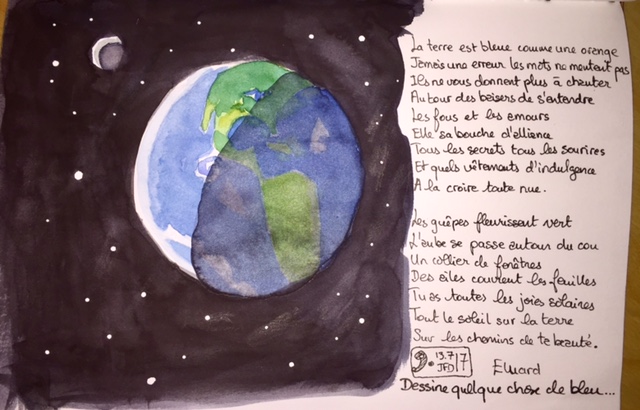 La terre est bleue comme une orange
Jamais une erreur les mots ne mentent pas
Ils ne vous donnent plus à chanter
Au tour des baisers de s'entendre
Les fous et les amours
Elle sa bouche d'alliance
Tous les secrets tous les sourires
Et quels vêtements d'indulgence
A la croire toute nue.

Les guêpes fleurissent vert
L'aube se passe autour du cou
Un collier de fenêtres
Des ailes couvrent les feuilles
Tu as toutes les joies solaires
Tout le soleil sur la terre
Sur les chemins de ta beauté.
13.7 17
JFD
Eluard
Dessine quelque chose de bleu...